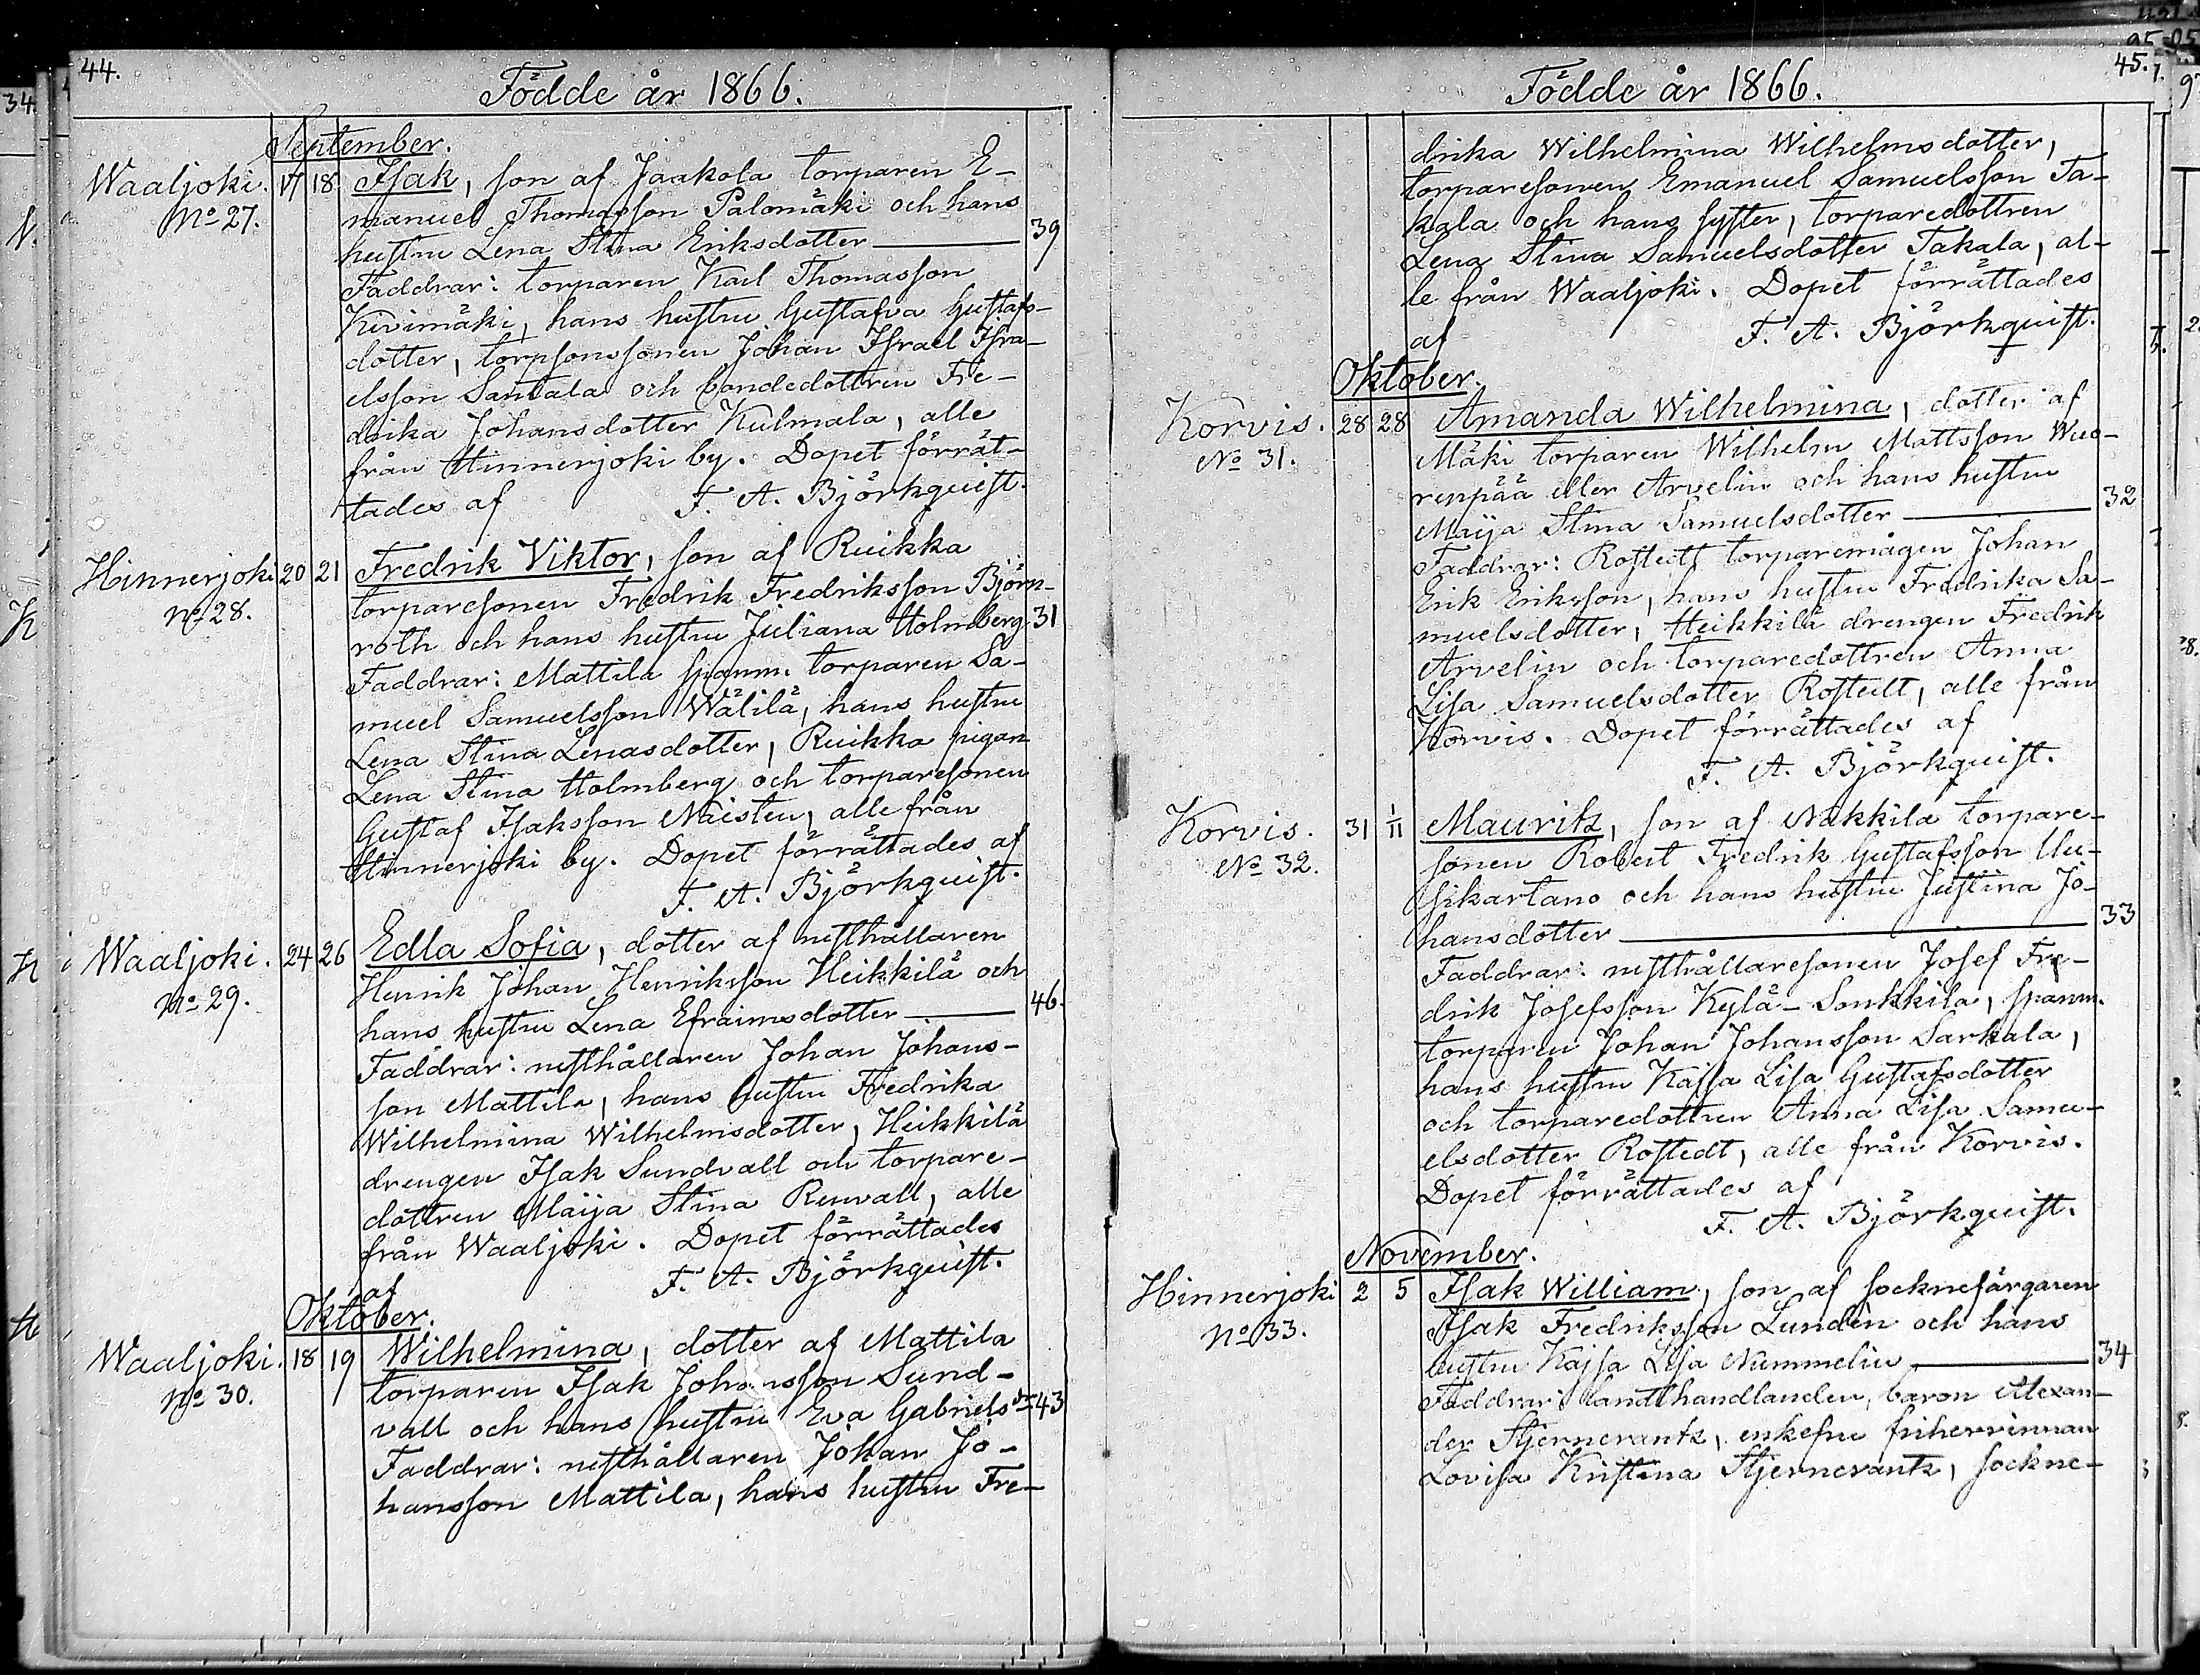 44.
Födde år 1866.
September.
Waaljoki. 17 18 Isak, son af Jaakola torparen E-
No 27. manuel Thomasson Palomäki och hans
hustru Lena Stina Eriksdotter — 39
Faddrar: torparen Karl Thomasson
Kivimäki, hans hustru Gustafva Gustafs-
dotter, torpsonssonen Johan Israel Isra-
elsson Santala och bondedottren Fre-
drika Johansdotter Kulmala, alle
från Hinnerjoki by. Dopet förrät-
tades af F. A. Björkquist.
Hinnerjoki 20 21 Fredrik Viktor, son af Ruikka
No 28. torparesonen Fredrik Fredriksson Björn-
roth och hans hustru Juliana Holmberg 31
Faddrar: Mattila spanm. torparen Sa-
muel Samuelsson Wälilä, hans hustru
Lena Stina Lenasdotter, Ruikka pigan
Lena Stina Holmberg och torparesonen
Gustaf Isaksson Naisten, alle från
Hinnerjoki by. Dopet förrättades af
F. A. Björkquist.
Waaljoki. 24 26 Edla Sofia, dotter af rusthållaren
No 29. Henrik Johan Henriksson Heikkilä och
hans hustru Lena Efraimsdotter — 46.
Faddrar: rusthållaren Johan Johans-
son Mattila, hans hustru Fredrika
Wilhelmina Wilhelmsdotter, Heikkilä
drengen Isak Sundvall och torpare-
dottren Maija Stina Renvall, alle
från Waaljoki. Dopet förrättades
af F. A. Björkquist.
Oktober.
Waaljoki. 18 19 Wilhelmina, dotter af Mattila
No 30. torparen Isak Johansson Sund-
vall och hans hustru Eva Gabriels dr 43
Faddrar: rusthållaren Johan Jo-
hansson Mattila, hans hustru Fre-
45.
Födde år 1866.
drika Wilhelmina Wilhelmsdotter,
torparesonen Emanuel Samuelsson Ta-
kala och hans syster, torparedottren
Lena Stina Samuelsdotter Takala, al-
le från Waaljoki. Dopet förrättades
af F. A. Björkquist.
Oktober.
Korvis. 28 28 Amanda Wilhelmina, dotter af
No 31. Mäki torparen Wilhelm Mattsson Wuo-
renpää eller Arvelin och hans hustru
Maija Stina Samuelsdotter — 32
Faddrar: Rostedt torparemågen Johan
Erik Eriksson, hans hustru Fredrika Sa-
muelsdotter, Heikkilä drengen Fredrik
Arvelin och torparedottren Anna
Lisa Samuelsdotter Rostedt, alle från
Korvis. Dopet förrättades af
F. A. Björkquist.
Korvis. 31 1/11 Mauritz, son af Nikkilä torpare-
No 32. sonen Robert Fredrik Gustafsson Uu-
sikartano och hans hustru Justina Jo-
hansdotter — 33
Faddrar: rusthållaresonen Josef Fre-
drik Josefsson Kylä-Sonkkila, spanm.
torparen Johan Johansson Sarkala,
hans hustru Kajsa Lisa Gustafsdotter
och torparedottren Anna Lisa Samu-
elsdotter Rostedt, alle från Korvis.
Dopet förrättades af
F. A. Björkquist.
November.
Hinnerjoki 2 5 Isak William, son af socknefärgaren
No 33. Isak Fredriksson Lundèn och hans
hustru Kajsa Lisa Nummelin — 34
Faddrar: landthandlanden, baron Alexan-
der Stjerncrantz, enkefru friherrinnan
Lovisa Kristina Stjerncrantz, sockne-